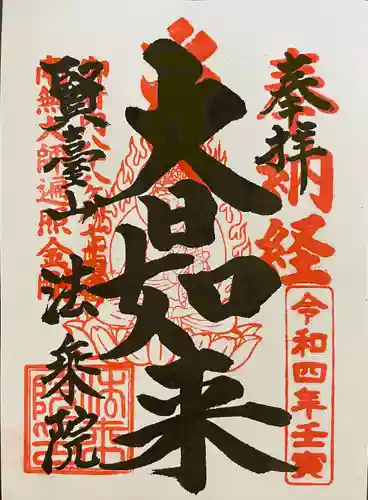 奉拝
納経
令和四年壬寅
大日如来
南無大師遍照金剛
賢臺山 法乗院